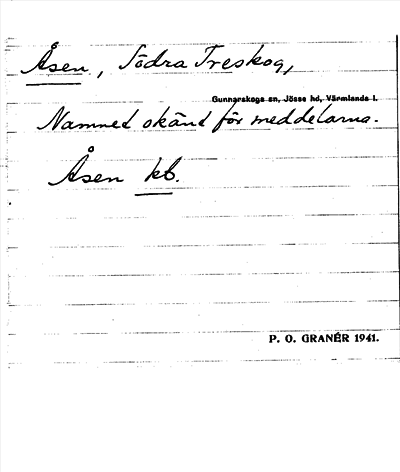 Åsen, Södra Treskog,
Gunnarskogs sn, Jösse hd, Värmlands l.
Namnet okänt för meddelarna.
Åsen kb.
P. O. GRANÉR 1941.